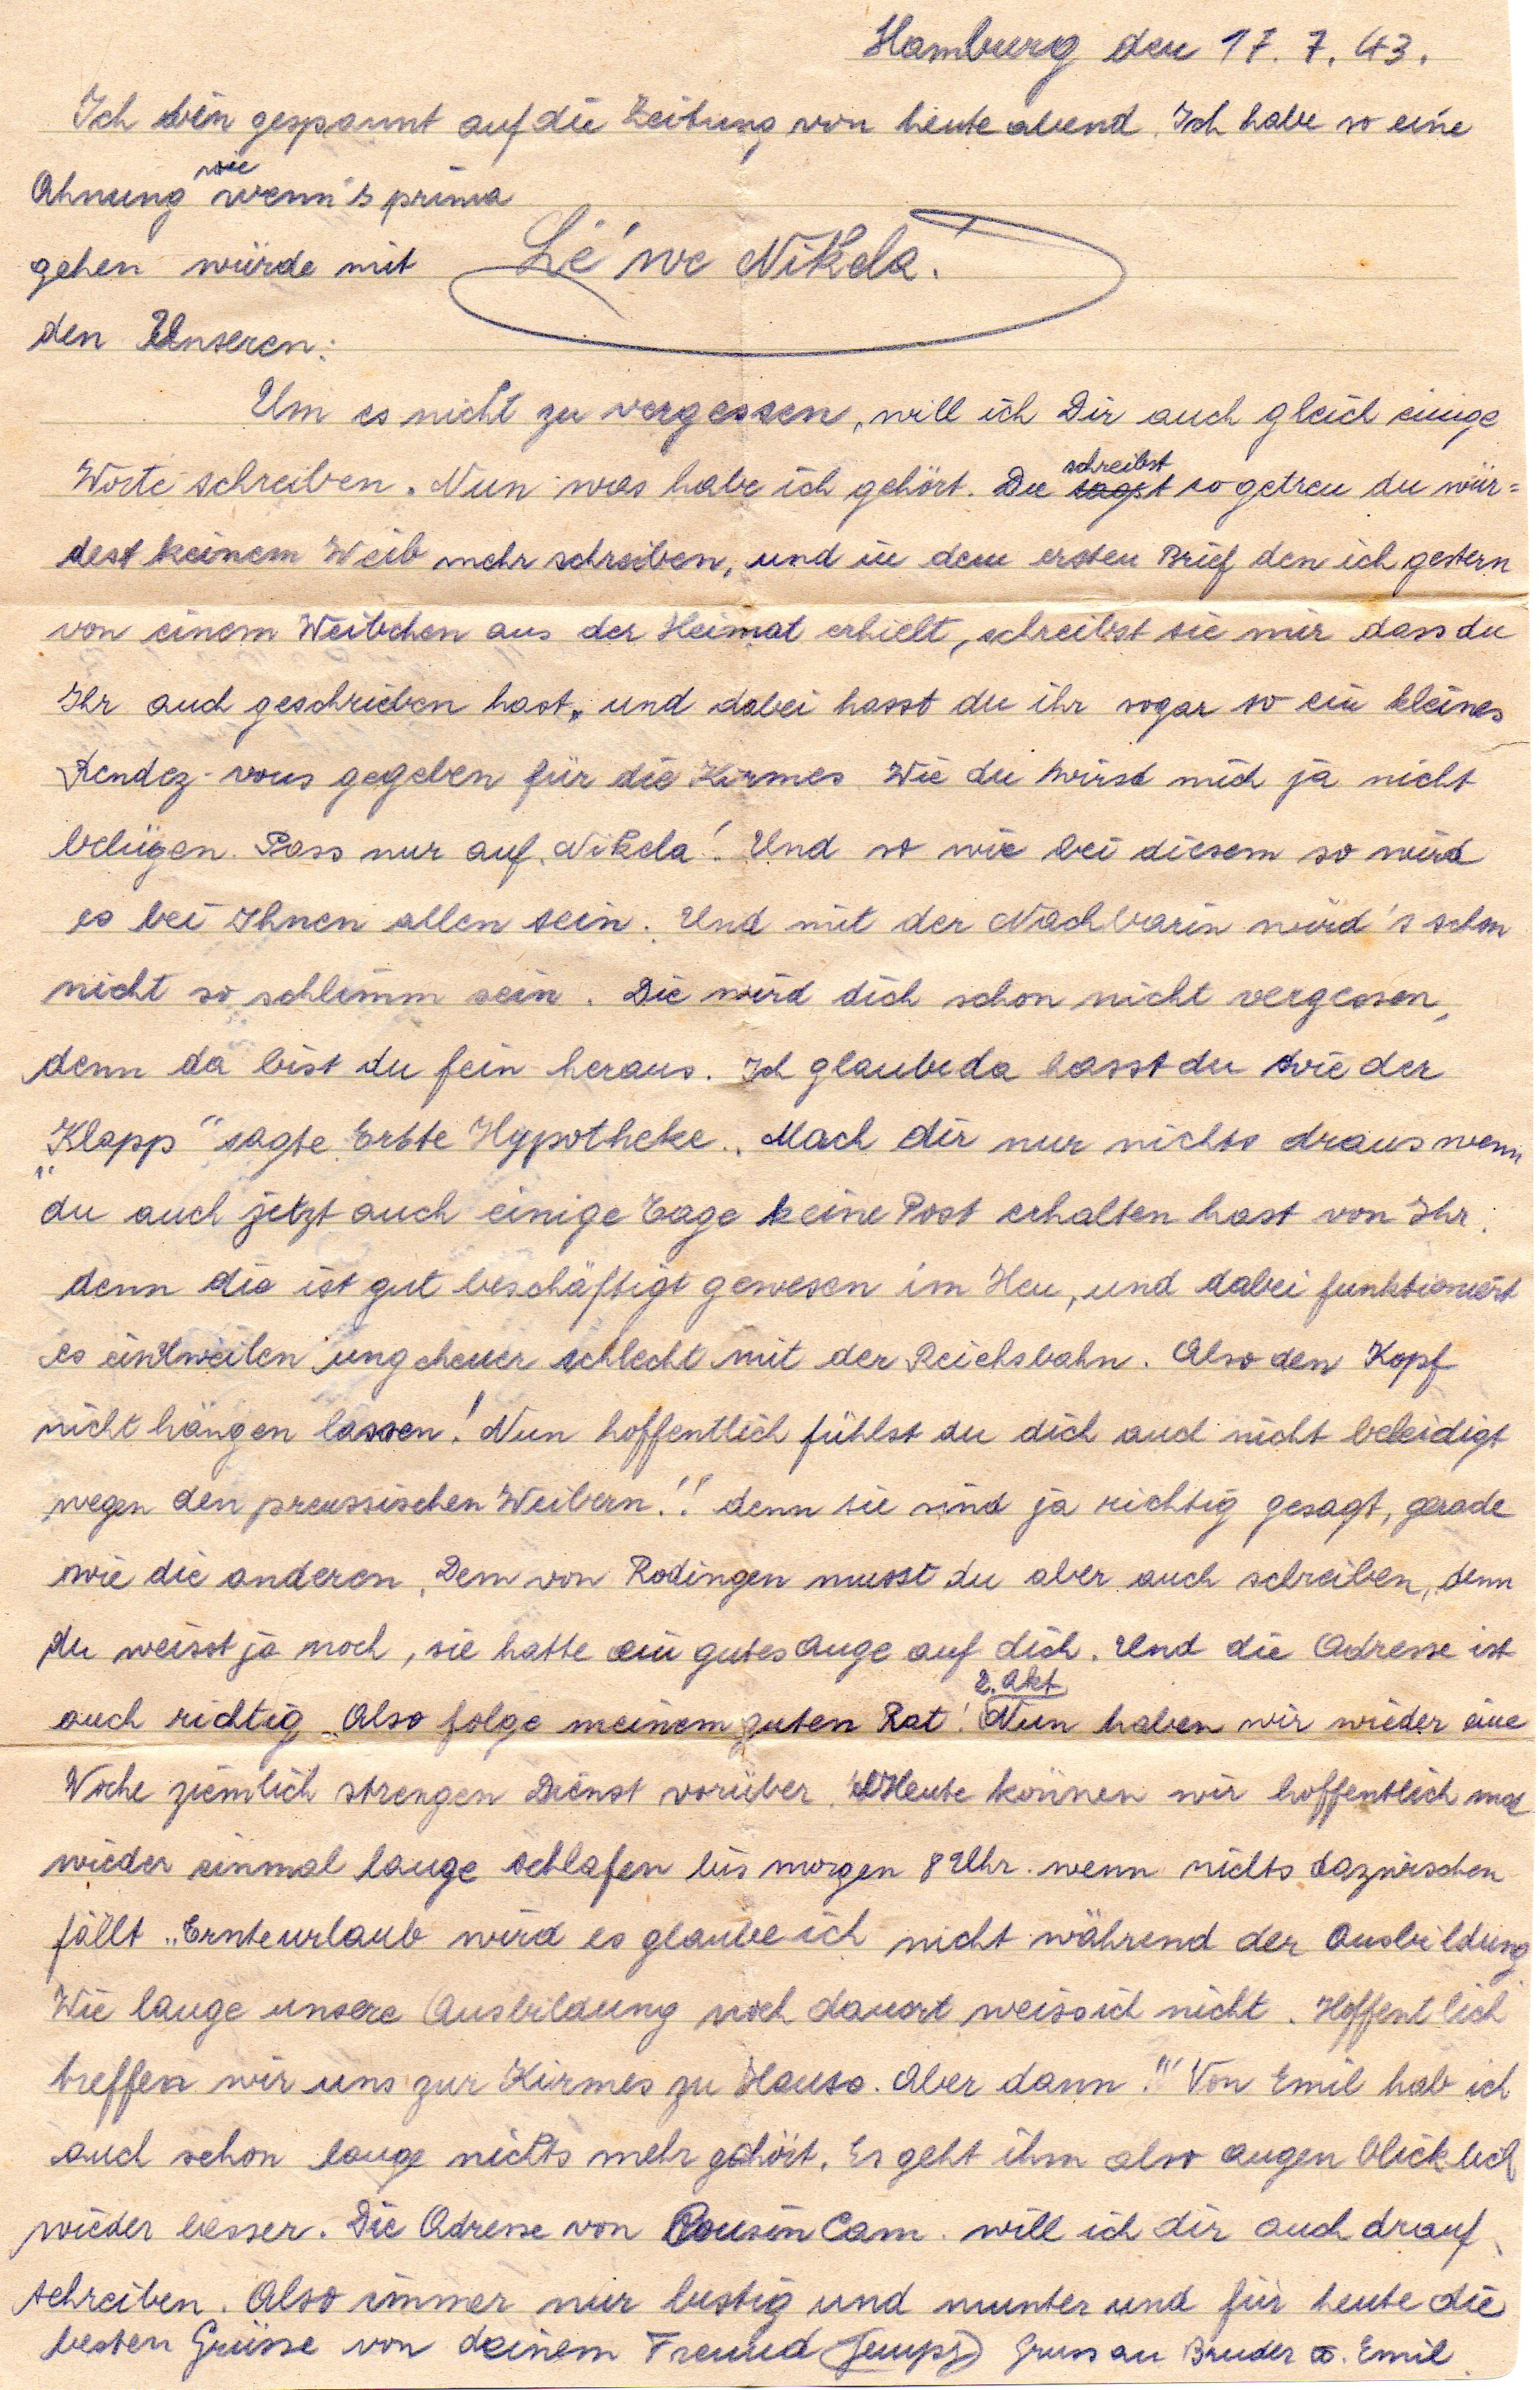 Hamburg den 17. 7. 43.
Ich bin gespannt auf die Zeitung von heute abend. Ich habe so eine
Ahnung wie wenn's prima
gehen würde mit
den Unseren:
Lé'we Nikela!
Um es nicht zu vergessen, will ich Dir auch gleich einige
Worte schreiben. Nun was habe ich gehört. Du sagst schreibst so getreu du wür=
dest keinem Weib mehr schreiben, und in dem ersten Brief den ich gestern
von einem Weibchen aus der Heimat erhielt, schreibst sie mir dass du
Ihr auch geschrieben hast, und dabei hasst du ihr sogar so ein kleines
Rendez-vous gegeben für die Kirmes. Wie du wirst mich ja nicht
belügen. Pass nur auf. Nikela! Und so wie bei diesem so wird
es bei Ihnen allen sein. Und mit der Nachbarin wird's schon
nicht so schlimm sein. Die wird dich schon nicht vergessen,
denn da bist du fein heraus. Ich glaube da hasst du wie der
„Klapp" sagte Erste Hypotheke.. Mach dir nur nichts draus wenn
du auch jetzt auch einige Tage keine Post erhalten hast von Ihr.
denn die ist gut beschäftigt gewesen im Heu, und dabei funktioniert
es einstweilen ungeheuer schlecht mit der Reichsbahn. Also den Kopf
nicht hängen lassen! Nun hoffentlich fühlst du dich auch nicht beleidigt
wegen den preussischen Weibern!! denn sie sind ja richtig gesagt, gerade
wie die anderen. Dem von Rodingen musst du aber auch schreiben, denn
du weisst ja noch, sie hatte ein gutes Auge auf dich. Und die Adresse ist
auch richtig. Also folge meinem guten Rat! 2. Akt Nun haben wir wieder eine
Woche ziemlich strengen Dienst vorüber. Heute können wir hoffentlich mal
wieder einmal lange schlafen bis morgen 8 Uhr. wenn nichts dazwischen
fällt. Ernteurlaub wird es glaube ich nicht während der Ausbildung
Wie lange unsere Ausbildung noch dauert weiss ich nicht. Hoffentlich
treffen wir uns zur Kirmes zu Hause. Aber dann!!! Von Emil hab ich
auch schon lange nichts mehr gehört. Es geht ihm also augenblicklich
wieder besser. Die Adresse von Cousin Cam. will ich dir auch drauf
schreiben. Also immer nur lustig und munter und für heute die
besten Grüsse von deinem Freund (Jempy) Gruss an Bruder u. Emil.